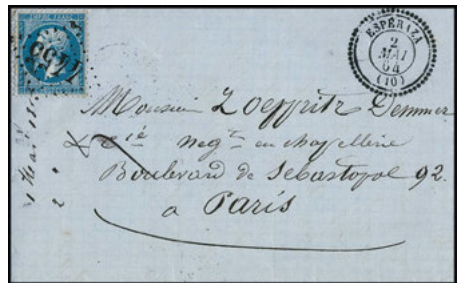 EMPIRE FRANC
ESPÉRAZA
2
MAI
64
(10)
Monsieur Zoeppritz Demmer
& Cié negt en chapellerie
Boulevard de Sebastopol 92.
a Paris